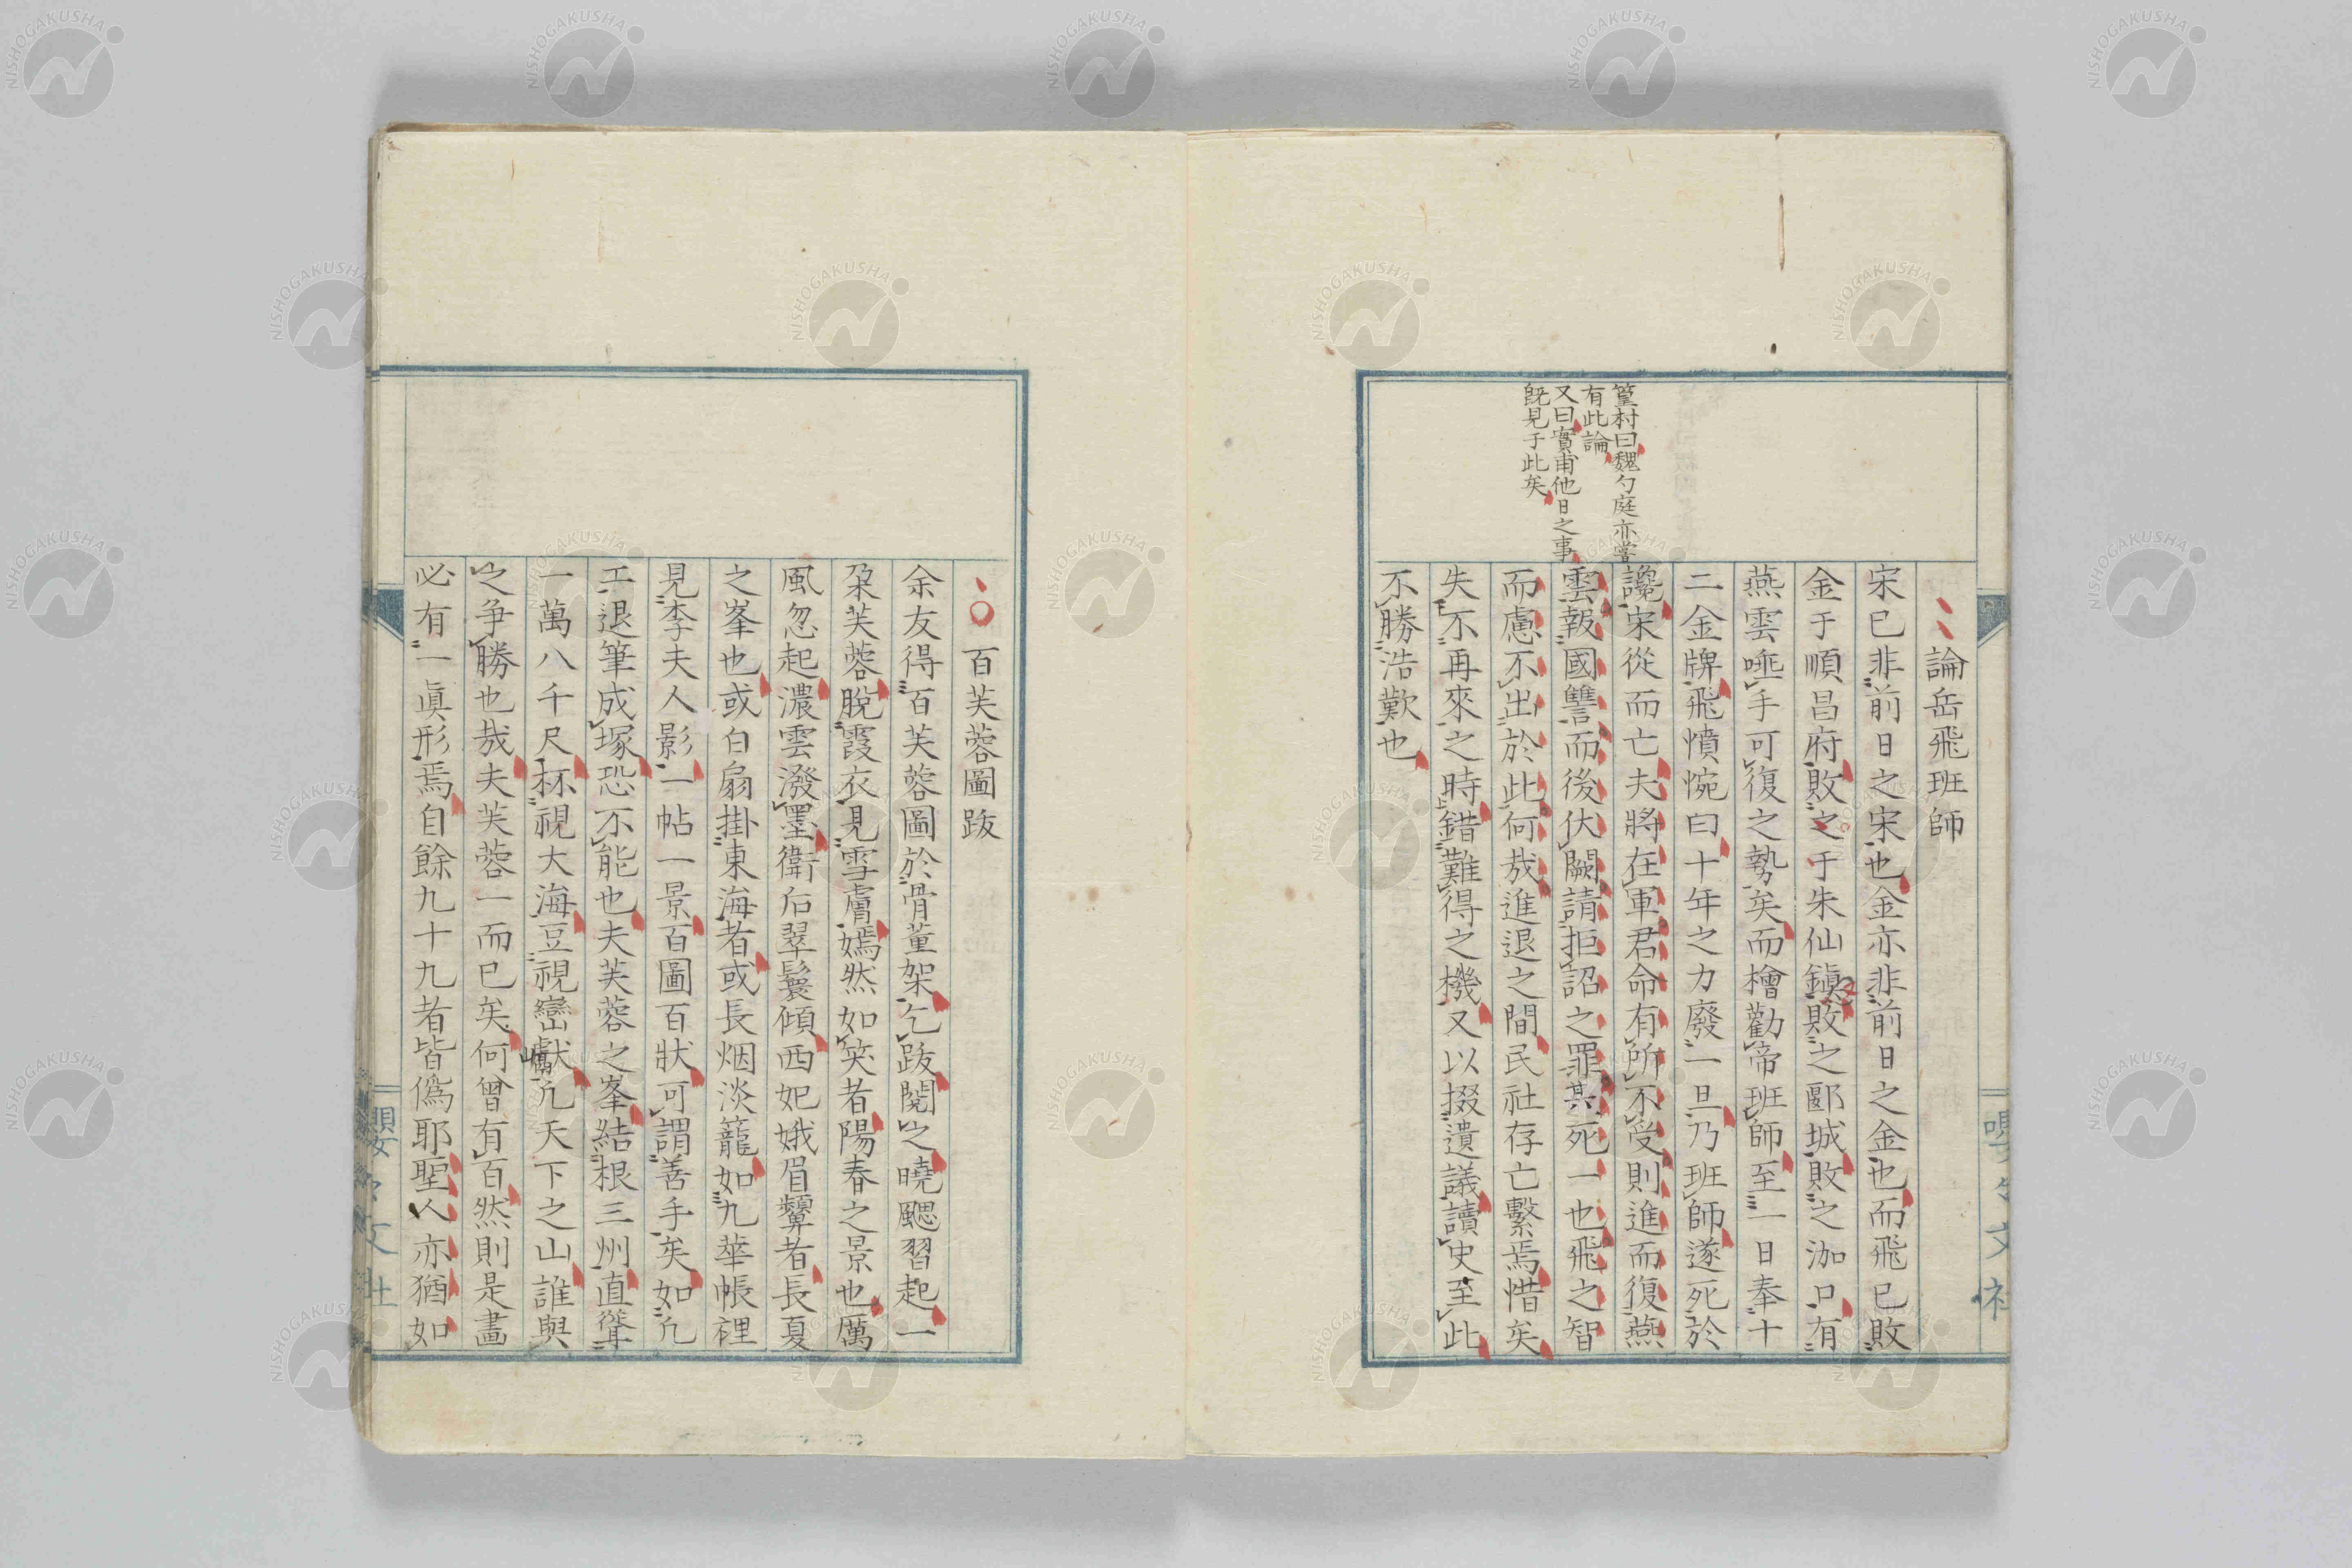 論岳飛班師
宋已非前日之宋也金亦非前日之金也而飛已敗
金于順昌府敗之于朱仙鎭敗之郾城敗之泇口有
燕雲唾手可復之勢矣而檜勸帝班師至一日奉十
二金牌飛憤惋曰十年之力廢一旦乃班師遂死於
讒宋從而亡夫將在軍君命有所不受則進而復燕
雲報國讐而後伏闕請拒詔之罪某死一也飛之智
而慮不出於此何哉進退之間民社存亡繫焉惜矣
失不再來之時錯難得之機又以掇遺議讀史至此
不勝浩歎也
篁村曰魏勺庭亦嘗
有此論
又曰實甫他日之事
既見于此矣
百芙蓉圖跋
余友得百芙蓉圖於骨董架乞跋閱之曉颸習起一
朶芙蓉脫霞衣見雪膚嫣然如笑者陽春之景也厲
風忽起濃雲潑墨衞后翠鬟傾西妃娥眉顰者長夏
之峯也或白扇掛東海者或長烟淡籠如九華帳裡
見李夫人影一帖一景百圖百狀可謂善手矣如凢
工退筆成塚恐不能也夫芙蓉之峯結根三州直聳
一萬八千尺杯視大海豆視巒巘凢天下之山誰與
之爭勝也哉夫芙蓉一而已矣何曾有百然則是畫
必有一眞形焉自餘九十九者皆僞耶聖人亦猶如
嚶鳴文社
嚶鳴文社
NISHOGAKUSHA